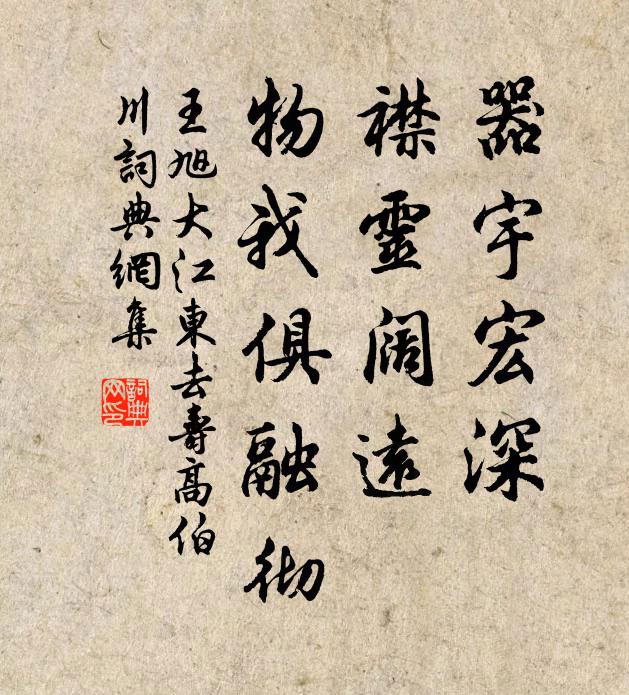 器宇宏深
襟靈阔遠
物我俱融彻
王旭大江東去壽高伯
川詞典網集
詞典
网印